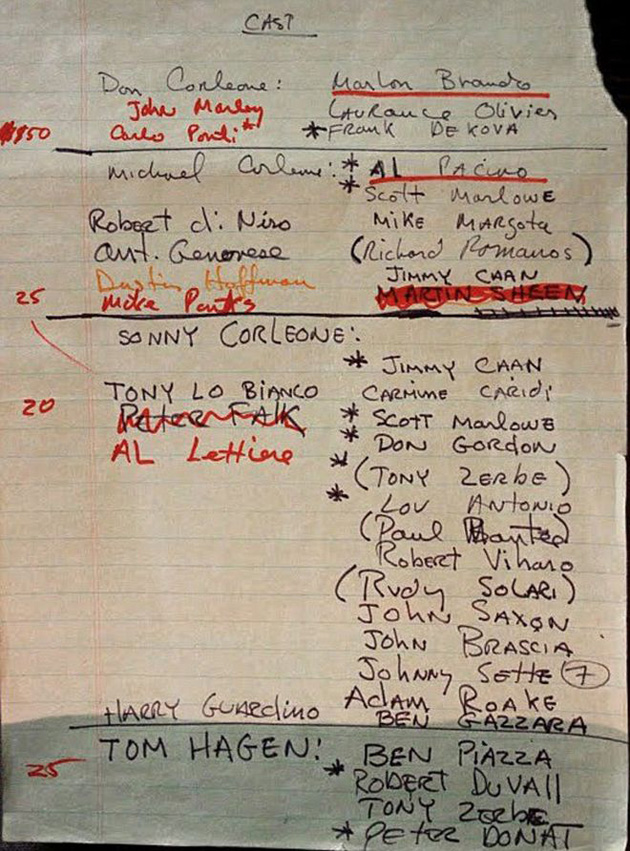 CAST
Don Corleone: Marlon Brando
John Marley LAURance Olivier
$850 Carlo Ponti* *FRANK DEKOVA
Michael Corleone: * AL PACINO
* Scott Marlowe
Robert di Niro MIKE MARGOTA
Ant. Genovese (Richard Romanos)
Dustin Hoffman JIMMY CAAN
25 Mike Parks MARTIN SHEEN
SONNY CORLEONE:
* JIMMY CAAN
TONY LO BIANCO CARMINE CARIDI
20 Peter FALK * SCOTT Marlowe
AL Lettiere * DON GORDON
* (TONY ZERBE)
* LOU ANTONIO
(Paul Banteo)
Robert Viharo
(Rudy SOLARI)
JOHN SAXON
JOHN BRASCIA
Johnny SETTE (7)
ADAM ROAKE
HARRY GUARDINO BEN GAZZARA
TOM HAGEN: BEN PIAZZA
25 * ROBERT DUVAll
TONY ZERBE
* PETER DONAT